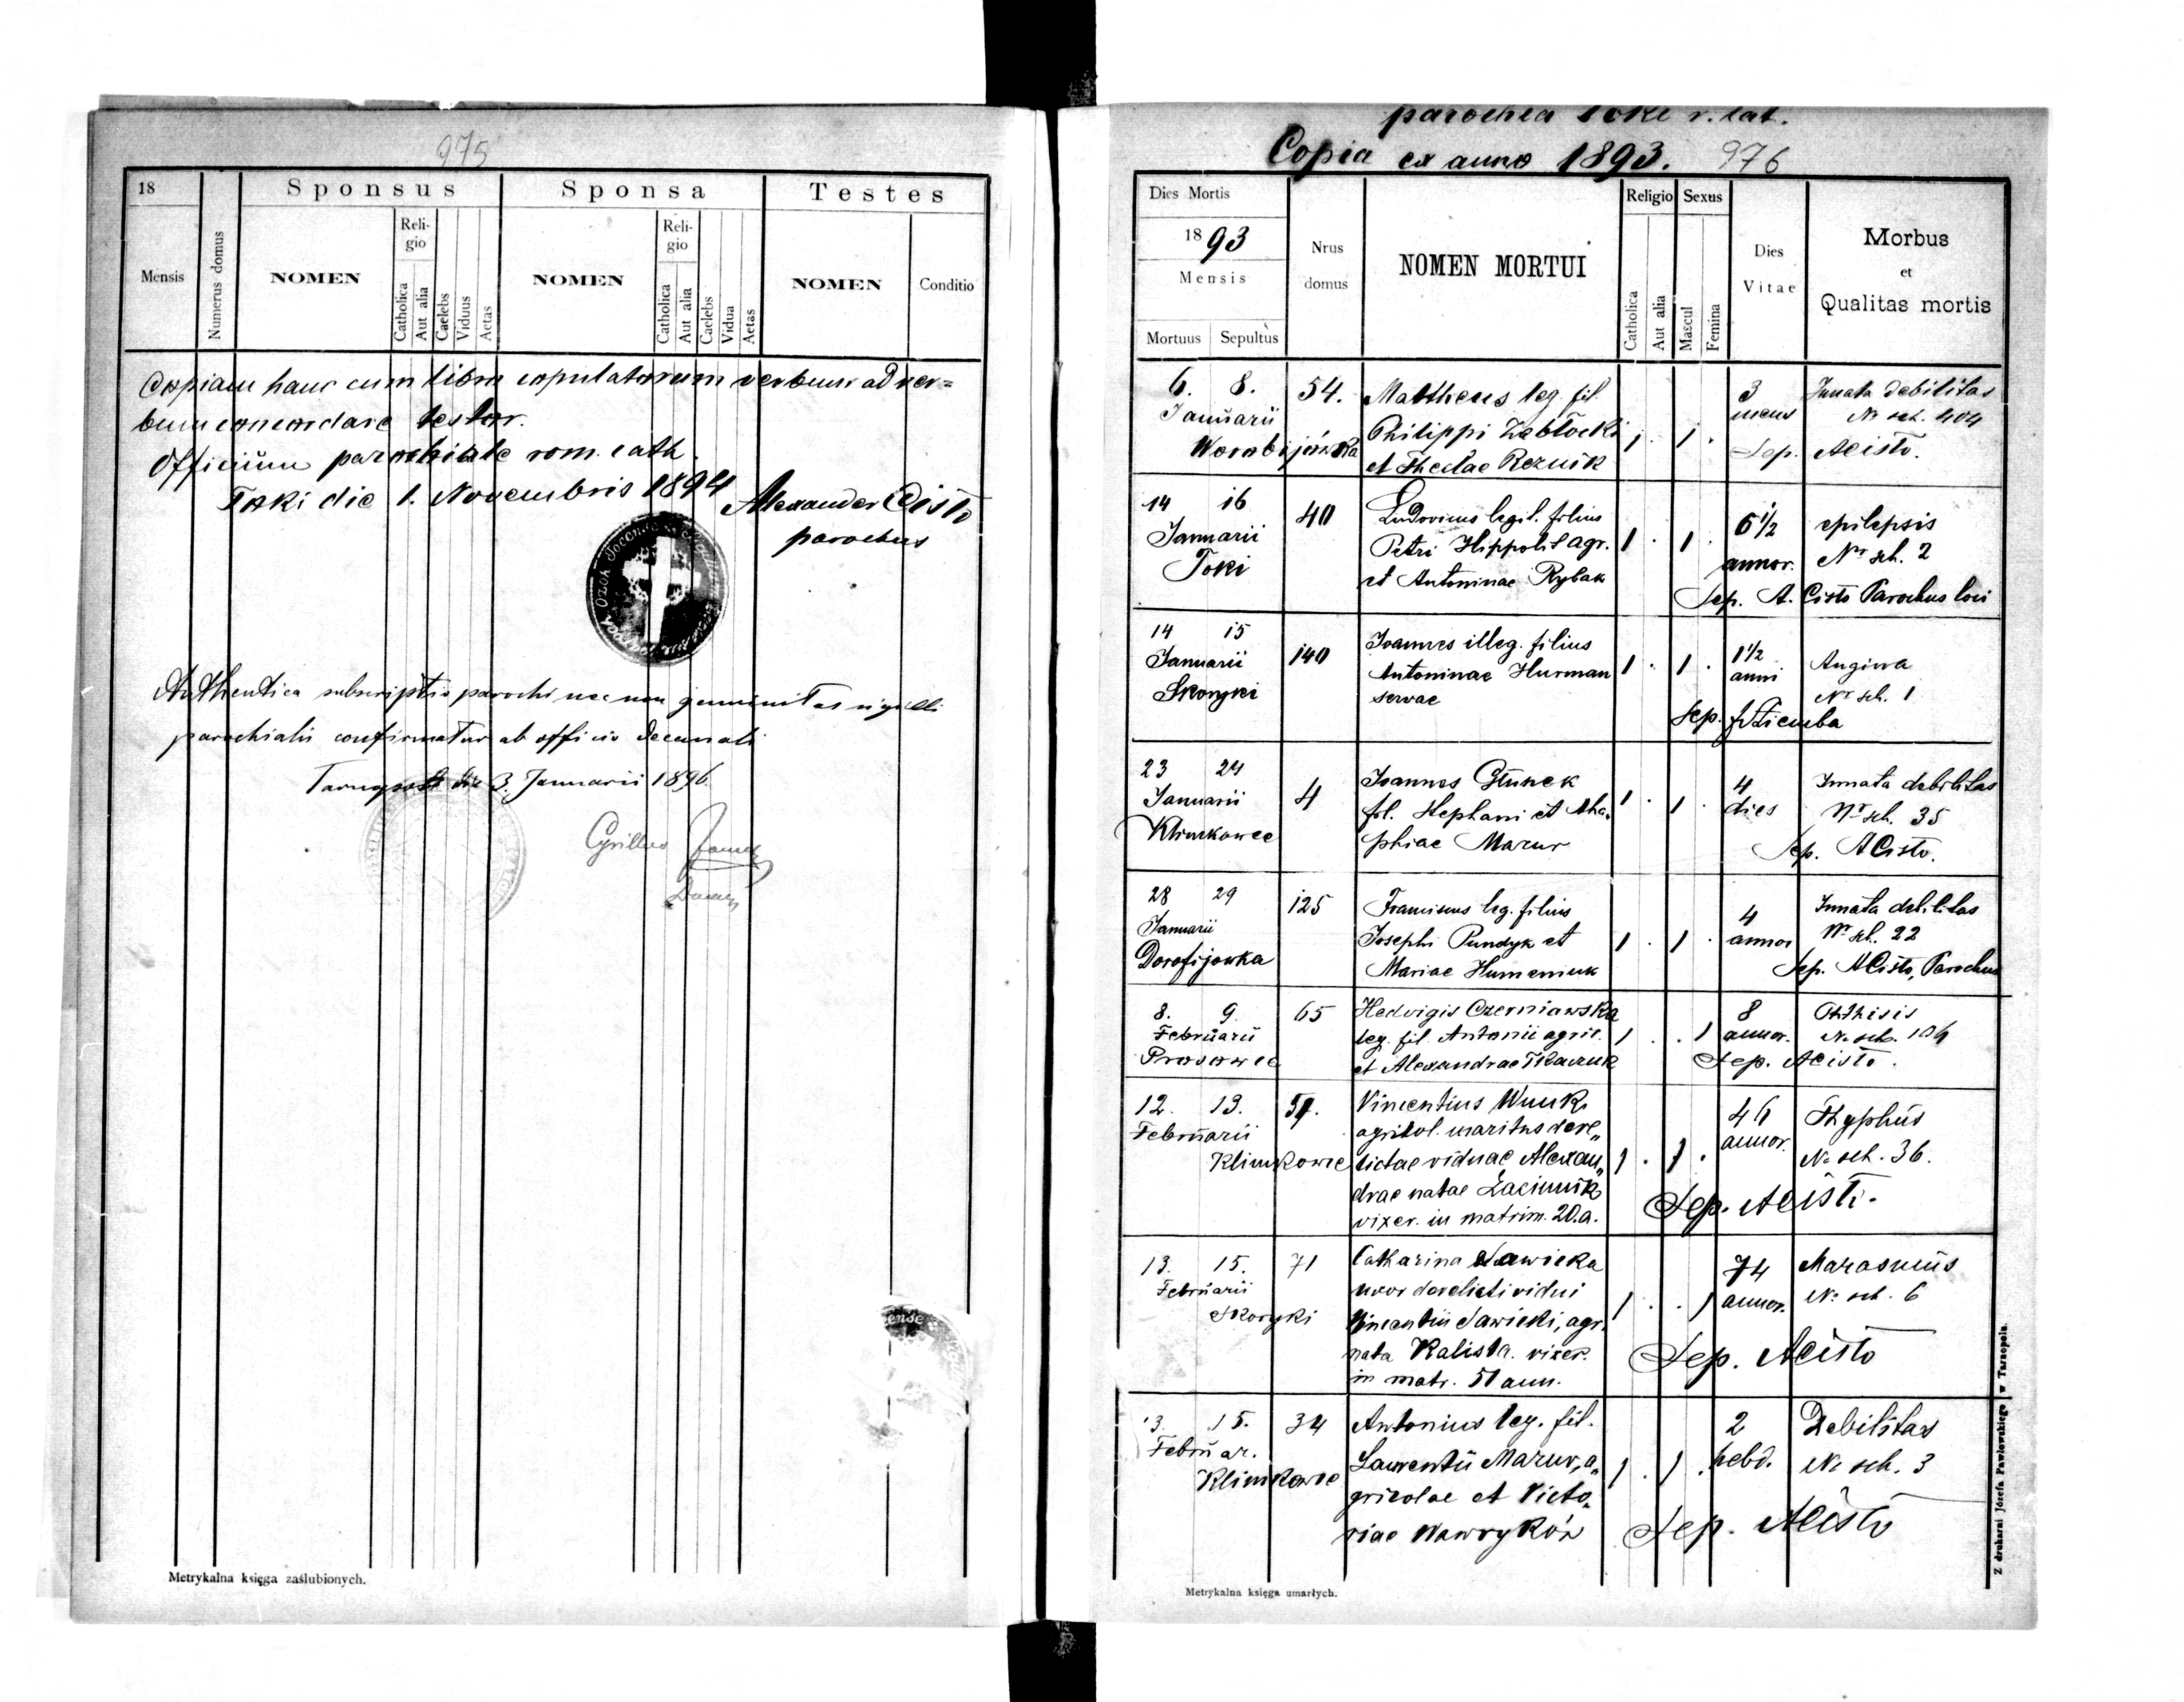 975
18
Sponsus
Sponsa
Testes
Mensis
Numerus domus
NOMEN
Religio
Catholica
Aut alia
Caelebs
Viduus
Aetas
NOMEN
Religio
Catholica
Aut alia
Caelebs
Vidua
Aetas
NOMEN
Conditio
Copiam hanc cum libro copulatorum verbum ad ver=
bum concordare testor.
Officium parochiale rom. cath.
Toki die 1. Novembris 1894 Alexander Cisto
parochus
Authentica subscriptio parochi nec non genuinitas sigilli
parochialis confirmatur ab officio decanali
die 3. Januarii 1896.
Cyrillus
Metrykalna księga zaślubionych.
parochia Toki r. lat.
Copia ex anno 1893. 976
Dies Mortis
1893
Mensis
Mortuus
Sepultus
Nrus domus
NOMEN MORTUI
Religio
Catholica
Aut alia
Sexus
Mascul
Femina
Dies Vitae
Morbus
et
Qualitas mortis
6. 8. 54. Mattheus leg. fil. 3 Innata debilitas
Januarii Philippi Zabłocki 1 . 1 . mens No sch. 404
Worobijówka et Theclae Reznik Sep. ACisto.
14 16 40 Ludovicus legit. filius 6½ epilepsis
Januarii Petri Hippolit agr. 1 . 1 . annor. Nr sch. 2
Toki et Antoninae Rybak Sep. A. Cisto Parochus loci
14 15 140 Joannes illeg. filius 1½ Angina
Januarii Antoninae Hurman 1 . 1 . anni Nr sch. 1
Skoryki servae Sep.
23 24 4 Joannes 4 Innata debilitas
Januarii fil. Stephani et Aha„ 1 . 1 . dies Nr sch. 35
Klimkowce phiae Mazur Sep. ACisto.
28 29 125 Franciscus leg. filius 4 Innata debilitas
Januarii Josephi Pundyk et 1 . 1 . annor Nr sch. 22
Dorofijowka Mariae Humeniuk Sep. ACisto, Parochus
8. 9. 65 Hedvigis Czerniawska 8 Phthisis
Februarii leg. fil. Antonii agric. 1 . . 1 annor. No sch. 104
Prosowce et Alexandrae Tkaczuk Sep. ACisto.
12. 13. 57. Vincentius Wnuk, 46 Thyphus
Februarii agricol. maritus dere„ annor.
Klimkowce lictae viduae Alexan„ 1 . 1 . No sch. 36.
drae natae Laciuuk
vixer. in matrim. 20.a. Sep. ACisto.
13. 15. 71 Catharina Sawicka 74 Marasmus
Februarii uxor derelicti vidui 1 . . 1 annor. No sch. 6
Skoryki Vincentii Sawicki, agr.
nata Kalista. vixer. Sep. ACisto
in matr. 51 ann.
13. 15. 34 Antonius leg. fil. 2 Debilitas
Februar. Laurentii Mazur, a„ 1 . 1 . hebd. No sch. 3
Klimkowce gricolae et Victo„
riae Nawrykóz Sep. ACisto
Metrykalna księga umarłych.
Z drukarni Józefa Pawłowskiego w Tarnopolu.